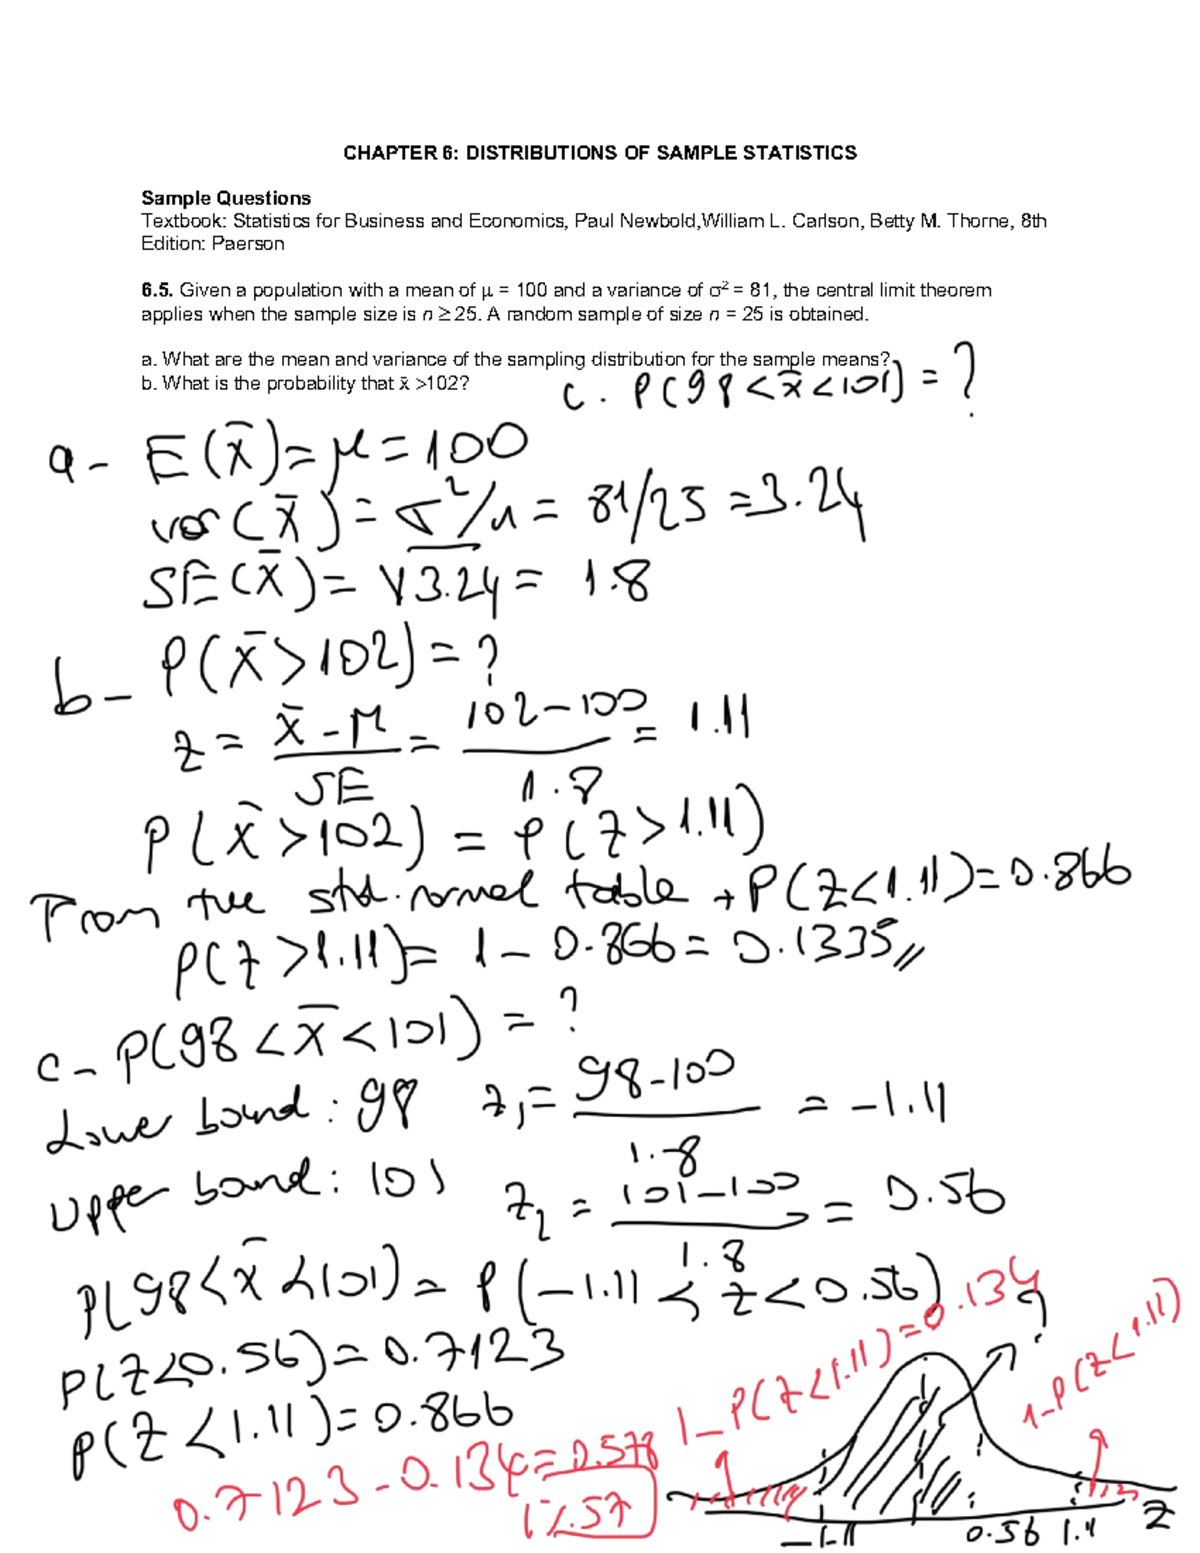 CHAPTER 6: DISTRIBUTIONS OF SAMPLE STATISTICS
Sample Questions
Textbook: Statistics for Business and Economics, Paul Newbold,William L. Carlson, Betty M. Thorne, 8th
Edition: Paerson
6.5. Given a population with a mean of μ = 100 and a variance of σ² = 81, the central limit theorem
applies when the sample size is n ≥ 25. A random sample of size n = 25 is obtained.
a. What are the mean and variance of the sampling distribution for the sample means?
b. What is the probability that x̄ >102?
c. P(98 < x̄ < 101) = ?
a- E(x̄) = μ = 100
var(x̄) = σ²/n = 81/25 = 3.24
SE(x̄) = √3.24 = 1.8
b- P(x̄ > 102) = ?
z = x̄ - μ / SE = 102 - 100 / 1.8 = 1.11
P(x̄ > 102) = P(Z > 1.11)
From the std. normal table → P(Z < 1.11) = 0.866
P(Z > 1.11) = 1 - 0.866 = 0.1335
c- P(98 < x̄ < 101) = ?
Lower bound: 98 z₁ = 98 - 100 / 1.8 = -1.11
Upper bound: 101 z₂ = 101 - 100 / 1.8 = 0.56
P(98 < x̄ < 101) = P(-1.11 < z < 0.56)
P(Z < 0.56) = 0.7123
P(Z < 1.11) = 0.866
0.7123 - 0.134 = 0.578
%57
1 - P(Z < 1.11) = 0.134
?
1 - P(Z < 1.11)
-1.11 0.56 1.11 Z